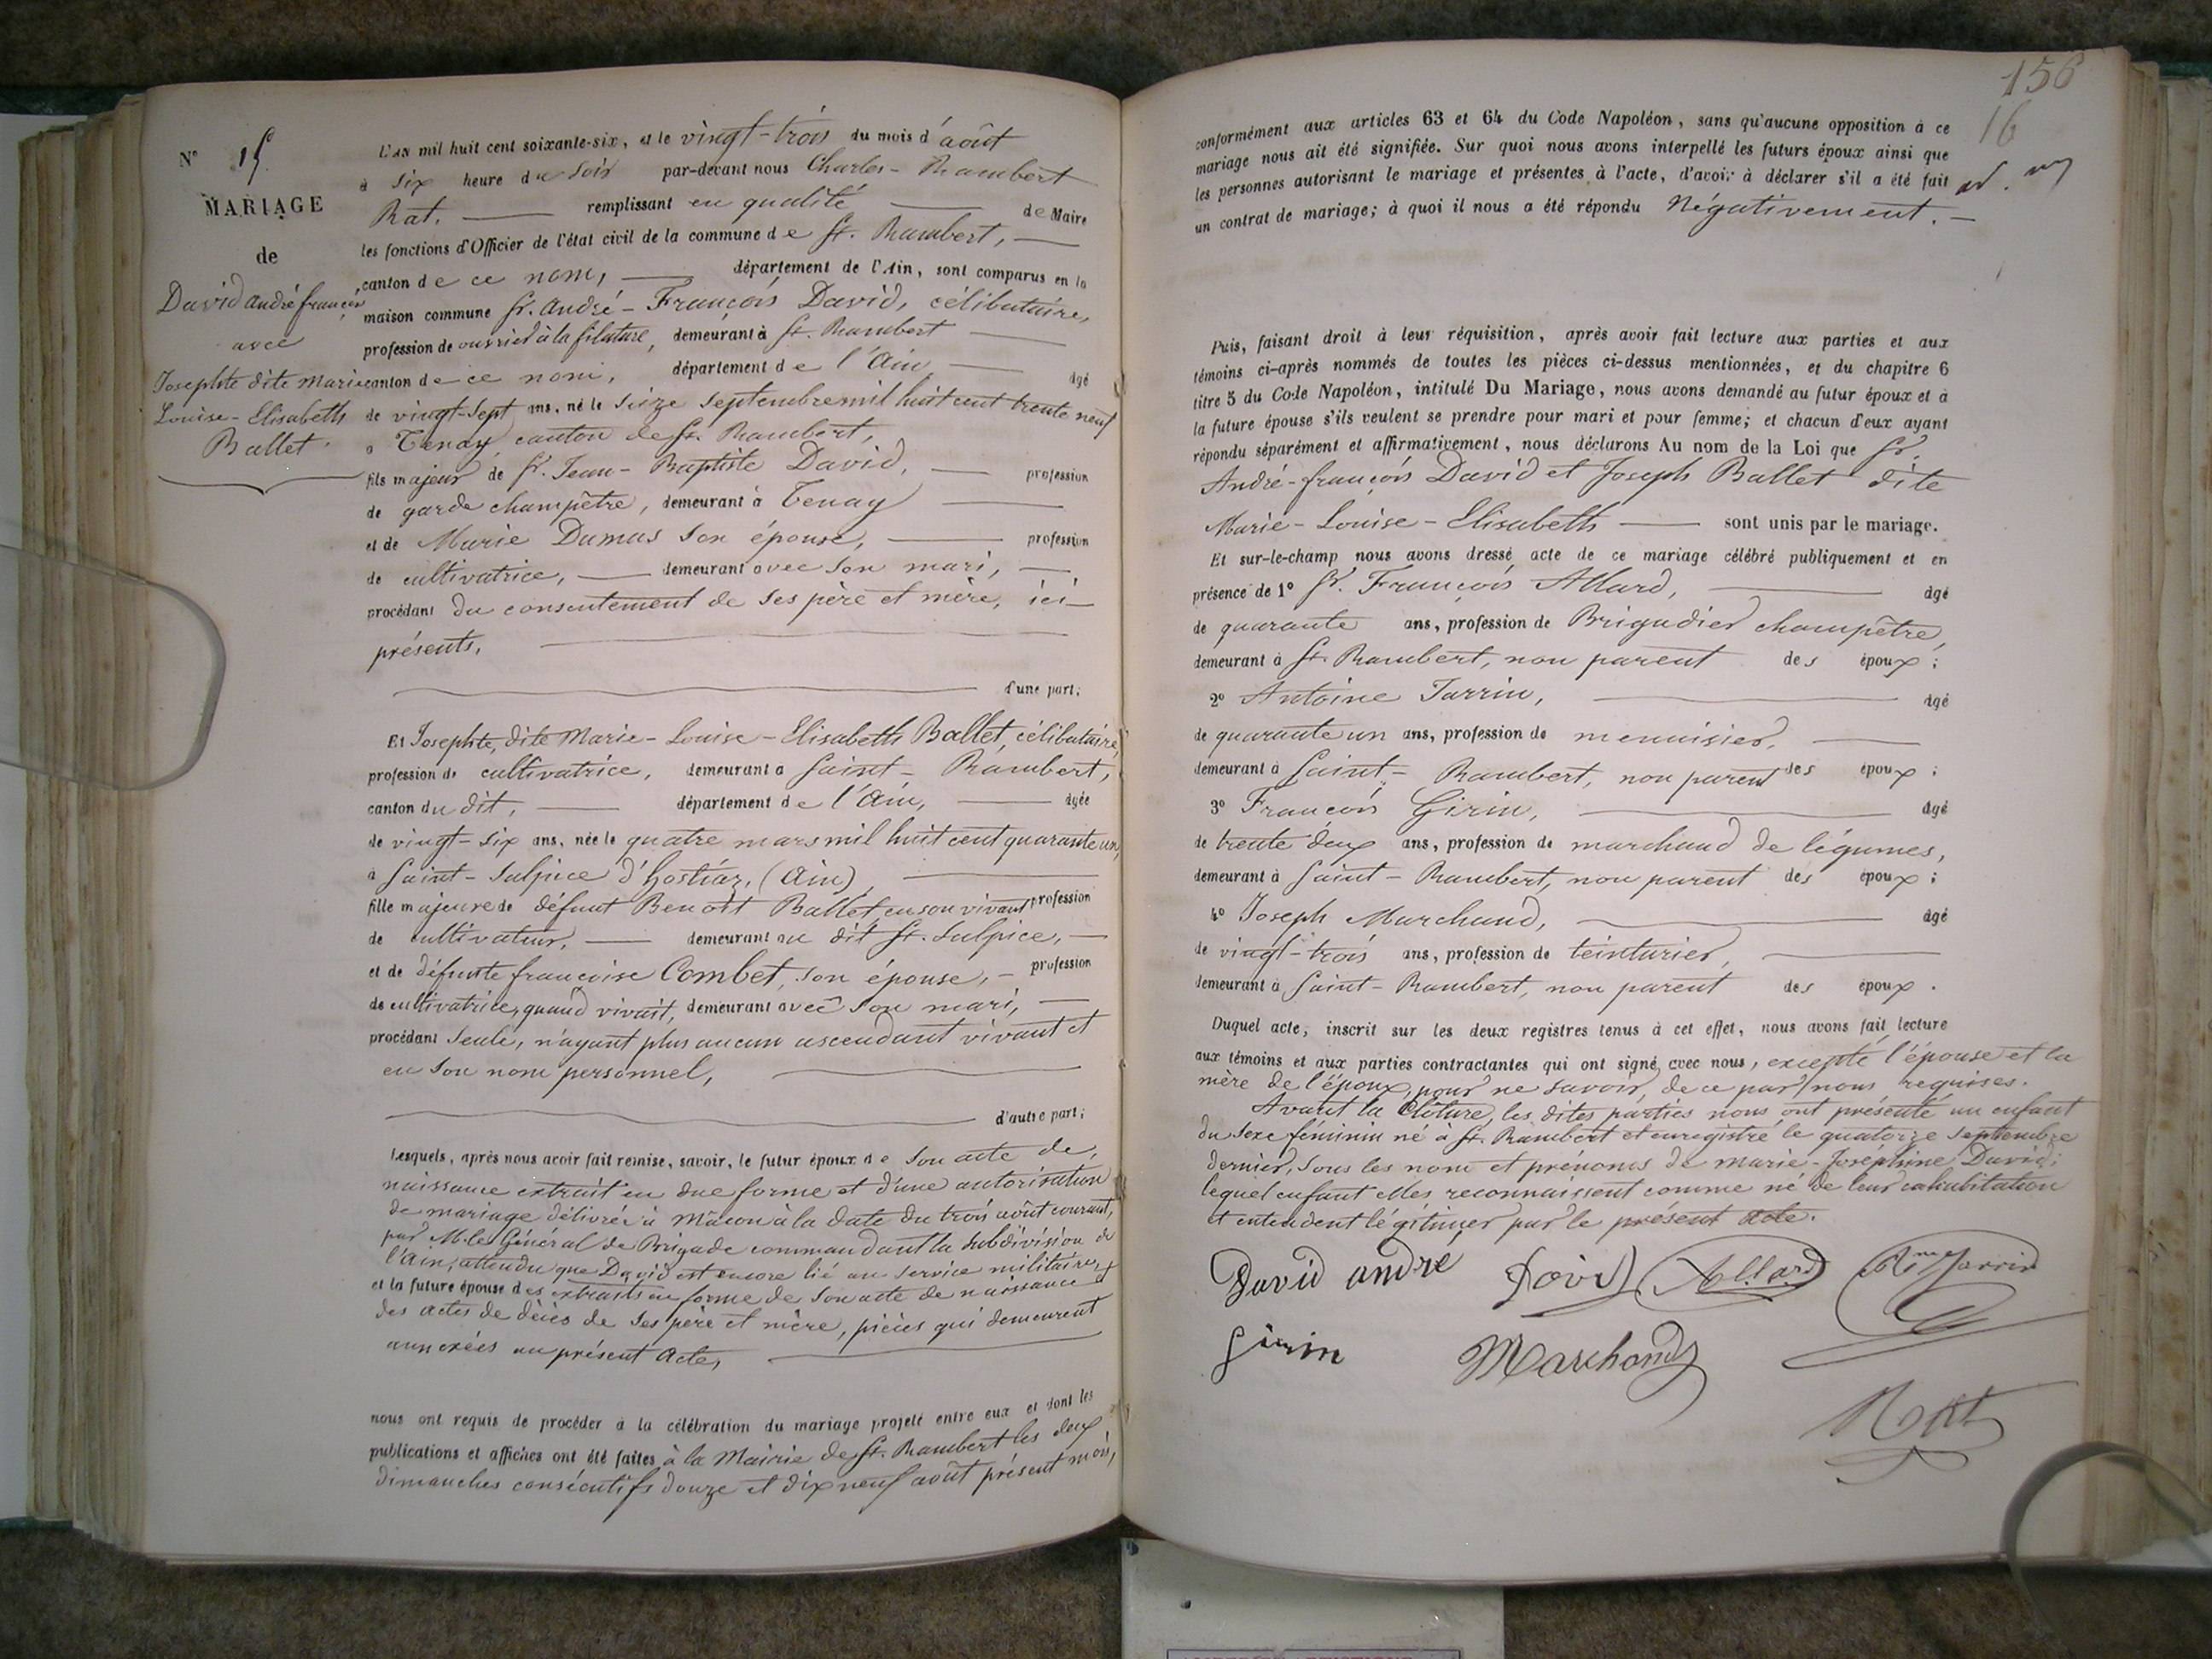 N° 15.
MARIAGE
de
David André françois
avec
Josephte dite Marie
Louise-Elisabeth
Ballet.
L'AN mil huit cent soixante-six, et le vingt-trois du mois d'août
à six heure du soir par-devant nous Charles-Rambert
Rat. remplissant en qualité de Maire
les fonctions d'Officier de l'état civil de la commune de St. Rambert,
canton de ce nom, département de l'Ain, sont comparus en la
maison commune Sr. André-François David, célibataire,
profession de ouvrier à la filature, demeurant à St. Rambert
canton de ce nom, département de l'Ain âgé
de vingt-sept ans, né le seize septembre mil huit cent trente neuf
à Tenay, canton de St. Rambert,
fils majeur de Sr. Jean-Baptiste David, profession
de garde champêtre, demeurant à Tenay
et de Marie Dumas son épouse, profession
de cultivatrice, demeurant avec son mari,
procédant du consentement de ses père et mère, ici
présents,
d'une part;
Et Josephte, dite Marie-Louise-Elisabeth Ballet, célibataire,
profession de cultivatrice, demeurant à Saint-Rambert,
canton du dit, département de l'Ain, âgée
de vingt-six ans, née le quatre mars mil huit cent quarante un,
à Saint-Sulpice d'hostiaz, (Ain),
fille majeure de défunt Benoît Ballet, en son vivant profession
de cultivateur, demeurant au dit St. Sulpice,
et de défunte françoise Combet, son épouse, profession
de cultivatrice, quand vivait, demeurant avec son mari,
procédant seule, n'ayant plus aucun ascendant vivant et
en son nom personnel,
d'autre part;
Lesquels, après nous avoir fait remise, savoir, le futur époux de son acte de
naissance extrait en due forme et d'une autorisation
de mariage délivrée à Mâcon à la date du trois août courant,
par M. le Général de Brigade commandant la subdivision de
l'Ain, attendu que David est encore lié au service militaire,
et la future épouse des extraits en forme de son acte de naissance
des actes de décès de ses père et mère, pièces qui demeurent
annexées au présent acte,
nous ont requis de procéder à la célébration du mariage projeté entre eux et dont les
publications et affiches ont été faites à la Mairie de St. Rambert les deux
dimanches consécutifs douze et dix neuf août présent mois,
156
16
conformément aux articles 63 et 64 du Code Napoléon, sans qu'aucune opposition à ce
mariage nous ait été signifiée. Sur quoi nous avons interpellé les futurs époux ainsi que
les personnes autorisant le mariage et présentes à l'acte, d'avoir à déclarer s'il a été fait
un contrat de mariage; à quoi il nous a été répondu Négativement.
Puis, faisant droit à leur réquisition, après avoir fait lecture aux parties et aux
témoins ci-après nommés de toutes les pièces ci-dessus mentionnées, et du chapitre 6
titre 5 du Code Napoléon, intitulé Du Mariage, nous avons demandé au futur époux et à
la future épouse s'ils veulent se prendre pour mari et pour femme; et chacun d'eux ayant
répondu séparément et affirmativement, nous déclarons Au nom de la Loi que Sr.
André-françois David et Joseph Ballet dite
Marie-Louise-Elisabeth sont unis par le mariage.
Et sur-le-champ nous avons dressé acte de ce mariage célébré publiquement et en
présence de 1° Sr. François Allard, âgé
de quarante ans, profession de Brigadier champêtre,
demeurant à St. Rambert, non parent des époux;
2° Antoine Jarrin, âgé
de quarante un ans, profession de menuisier,
demeurant à Saint-Rambert, non parent des époux;
3° François Girin, âgé
de trente deux ans, profession de marchand de légumes,
demeurant à Saint-Rambert, non parent des époux;
4° Joseph Marchand, âgé
de vingt-trois ans, profession de teinturier,
demeurant à Saint-Rambert, non parent des époux.
Duquel acte, inscrit sur les deux registres tenus à cet effet, nous avons fait lecture
aux témoins et aux parties contractantes qui ont signé avec nous, excepté l'épouse et la
mère de l'époux, pour ne savoir, de ce par nous requises.
Avant la clôture, les dites parties nous ont présenté un enfant
du sexe féminin né à St. Rambert et enregistré le quatorze septembre
dernier, sous les nom et prénoms de Marie-Joséphine David;
lequel enfant elles reconnaissent comme né de leur cohabitation
et entendent légitimer par le présent acte.
David andre David Allard Ane Jarrin
Girin Marchand
Rat